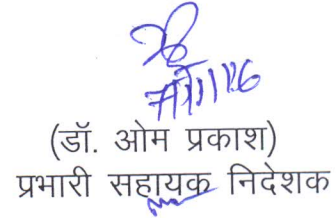 (डॉ. ओम प्रकाश)
प्रभारी सहायक निदेशक